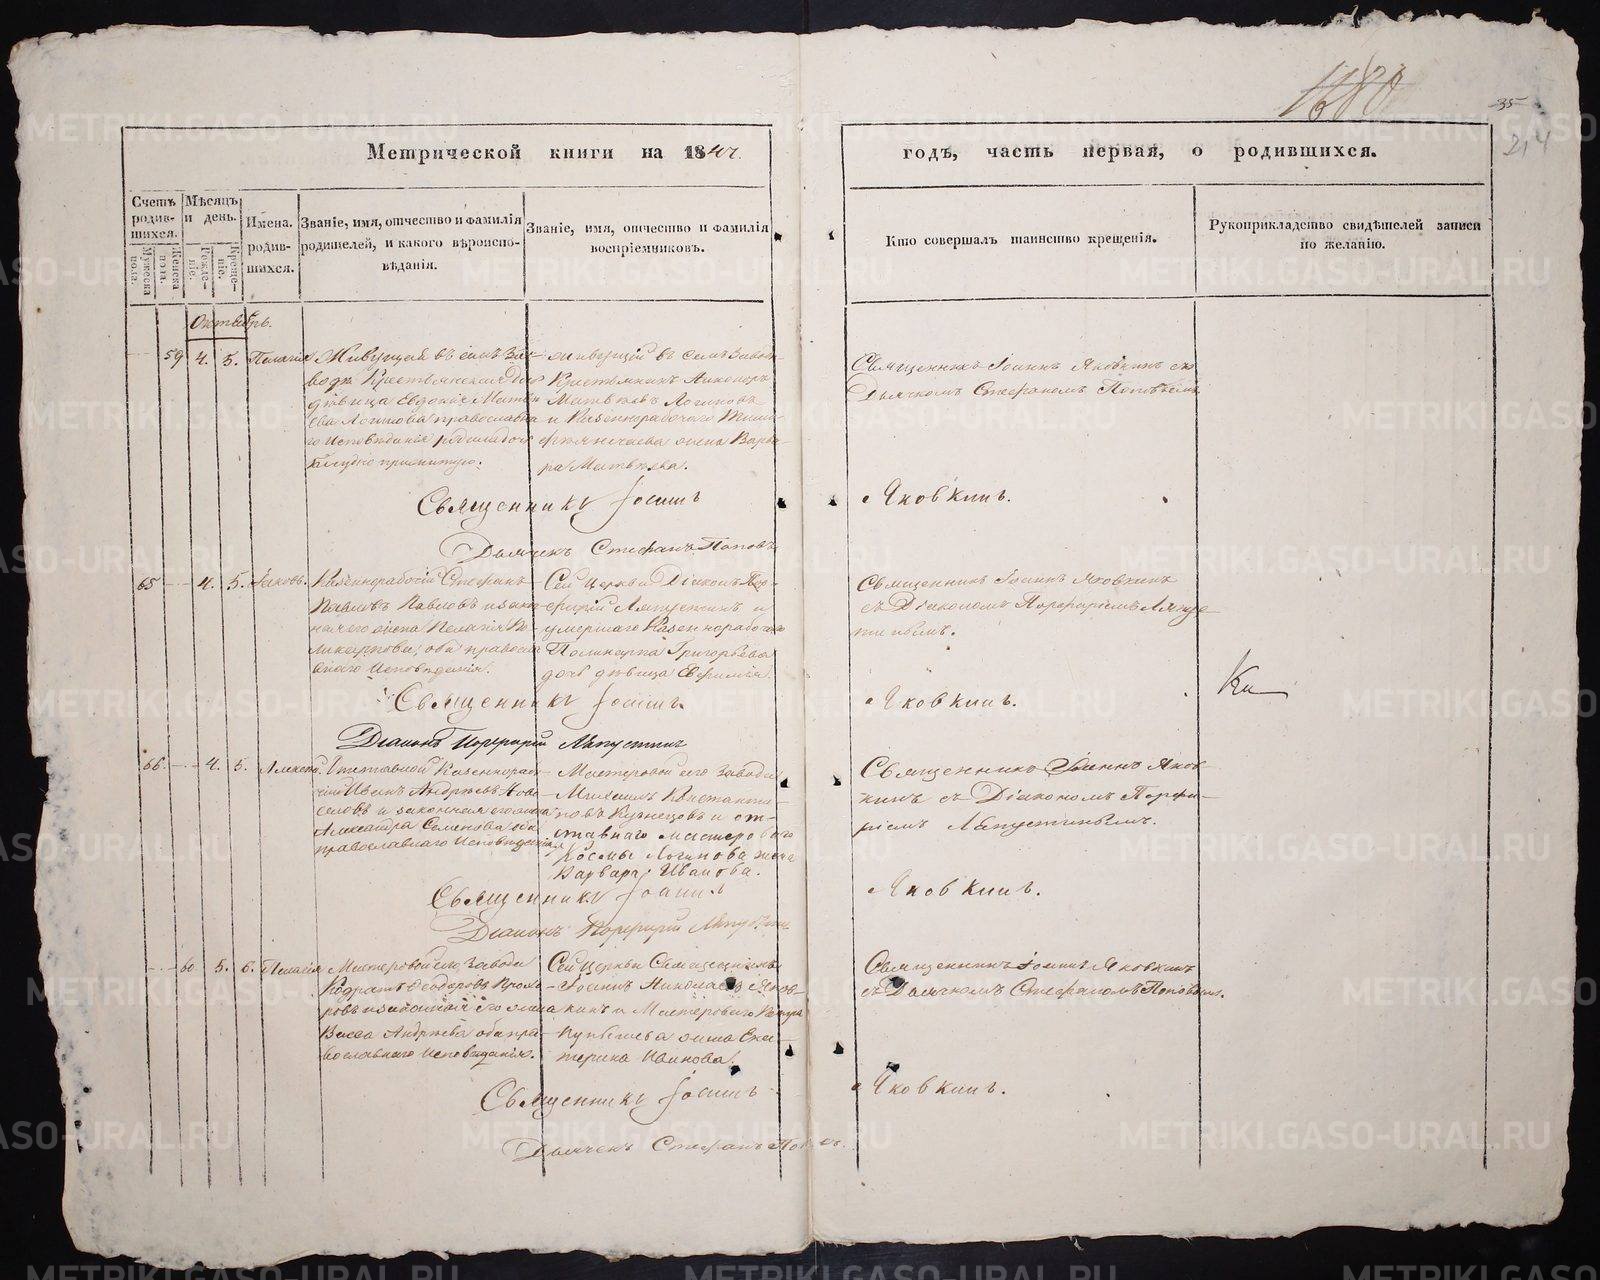 1680
35
214
Метрической книги на 1844.
годъ, часть первая, о родившихся.
Счетъ родившихся.
Мужеска пола.
Женска пола.
Мѣсяцъ и день.
Рожденіе.
Крещеніе.
Имена родившихся.
Званіе, имя, отчество и фамилія родителей, и какого вѣроисповѣданія.
Званіе, имя, отчество и фамилія воспріемниковъ.
Кто совершалъ таинство крещенія.
Рукоприкладство свидѣтелей записи по желанію.
Октябрь.
59 4. 5. Пелагія
Живущей въ семъ За-
водѣ Крестьянская До-
дѣвица Евдокія Матѳ-
ева Логинова православна-
го Исповѣданія
живущій въ семъ Заводѣ
Крестьянинъ Никаноръ
Матвѣевъ Логиновъ
и Казеннорабочаго
жена Варва-
ра Матвѣева.
Священникъ Іоаннъ Яковкинъ съ
Дьячкомъ Стефаномъ Поповымъ
Священникъ Іоаннъ Яковкинъ.
Дьячекъ Стефанъ Поповъ
65 4. 5. Іаковъ.
Казеннорабочій Стефанъ
Павловъ Павловъ и закон-
ная его жена Пелагія По-
ликарпова, оба правосла-
внаго Исповѣданія.
Сей Церкви Діаконъ Пор-
фирій Ляпустинъ и
умершаго Казеннорабочаго
Поликарпа Григорьева
дочь дѣвица Евфимія.
Священникъ Іоаннъ Яковкинъ
съ Діакономъ Порфиріемъ Ляпу-
стинымъ.
Священникъ Іоаннъ Яковкинъ.
Діаконъ Порфирій Ляпустинъ
66. 4. 5.
Отставной Казеннорабо-
чій Иванъ Андреевъ Ново-
селовъ и законная его жена
Александра Семенова оба
православнаго Исповѣданія
Мастеровой сего Завода
Михаилъ Константи-
новъ Кузнецовъ и от-
ставнаго мастероваго
Космы Логинова жена
Варвара Иванова.
Священникъ Іоаннъ Яков-
кинъ съ Діакономъ Порфи-
ріемъ Ляпустинымъ.
Священникъ Іоаннъ Яковкинъ.
Діаконъ Порфирій Ляпустинъ
60 5. 6. Пелагія
Мастеровой сего Завода
Кодратъ Ѳеодоровъ
и законная его жена
Васса Андреева оба пра-
вославнаго Исповѣданія.
Сей Церкви Священникъ
Іоаннъ Николаевъ Яков-
кинъ и Мастероваго Петра
жена Ека-
терина Иванова.
Священникъ Іоаннъ Яковкинъ
съ Дьячкомъ Стефаномъ Поповымъ.
Священникъ Іоаннъ Яковкинъ.
Дьячекъ Стефанъ Поповъ.
METRIKI.GASO-URAL.RU